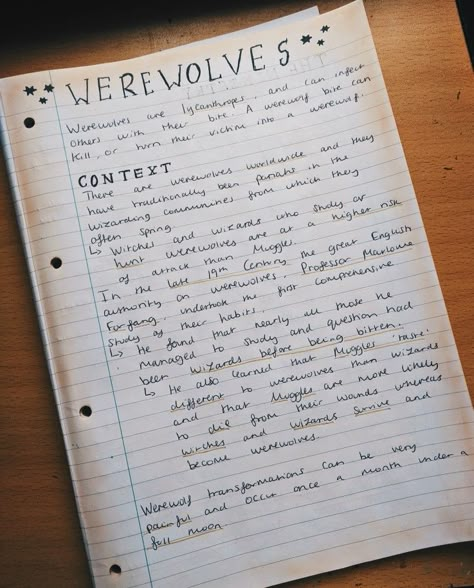 WEREWOLVES
Werewolves are lycanthropes, and can infect
others with their bite. A werewolf bite can
kill, or turn their victim into a werewolf.
CONTEXT
There are werewolves worldwide and they
have traditionally been pariahs in the
wizarding communities from which they
often spring.
↳ Witches and wizards who study or
hunt werewolves are at a higher risk
of attack than Muggles.
In the late 19th Century the great English
authority on werewolves, Professor Marlowe
Forfang, undertook the first comprehensive
study of their habits.
↳ He found that nearly all those he
managed to study and question had
been wizards before being bitten.
↳ He also learned that Muggles 'taste'
different to werewolves than wizards
and that Muggles are more likely
to die from their wounds whereas
witches and wizards survive and
become werewolves.
Werewolf transformations can be very
painful and occur once a month under a
full moon.